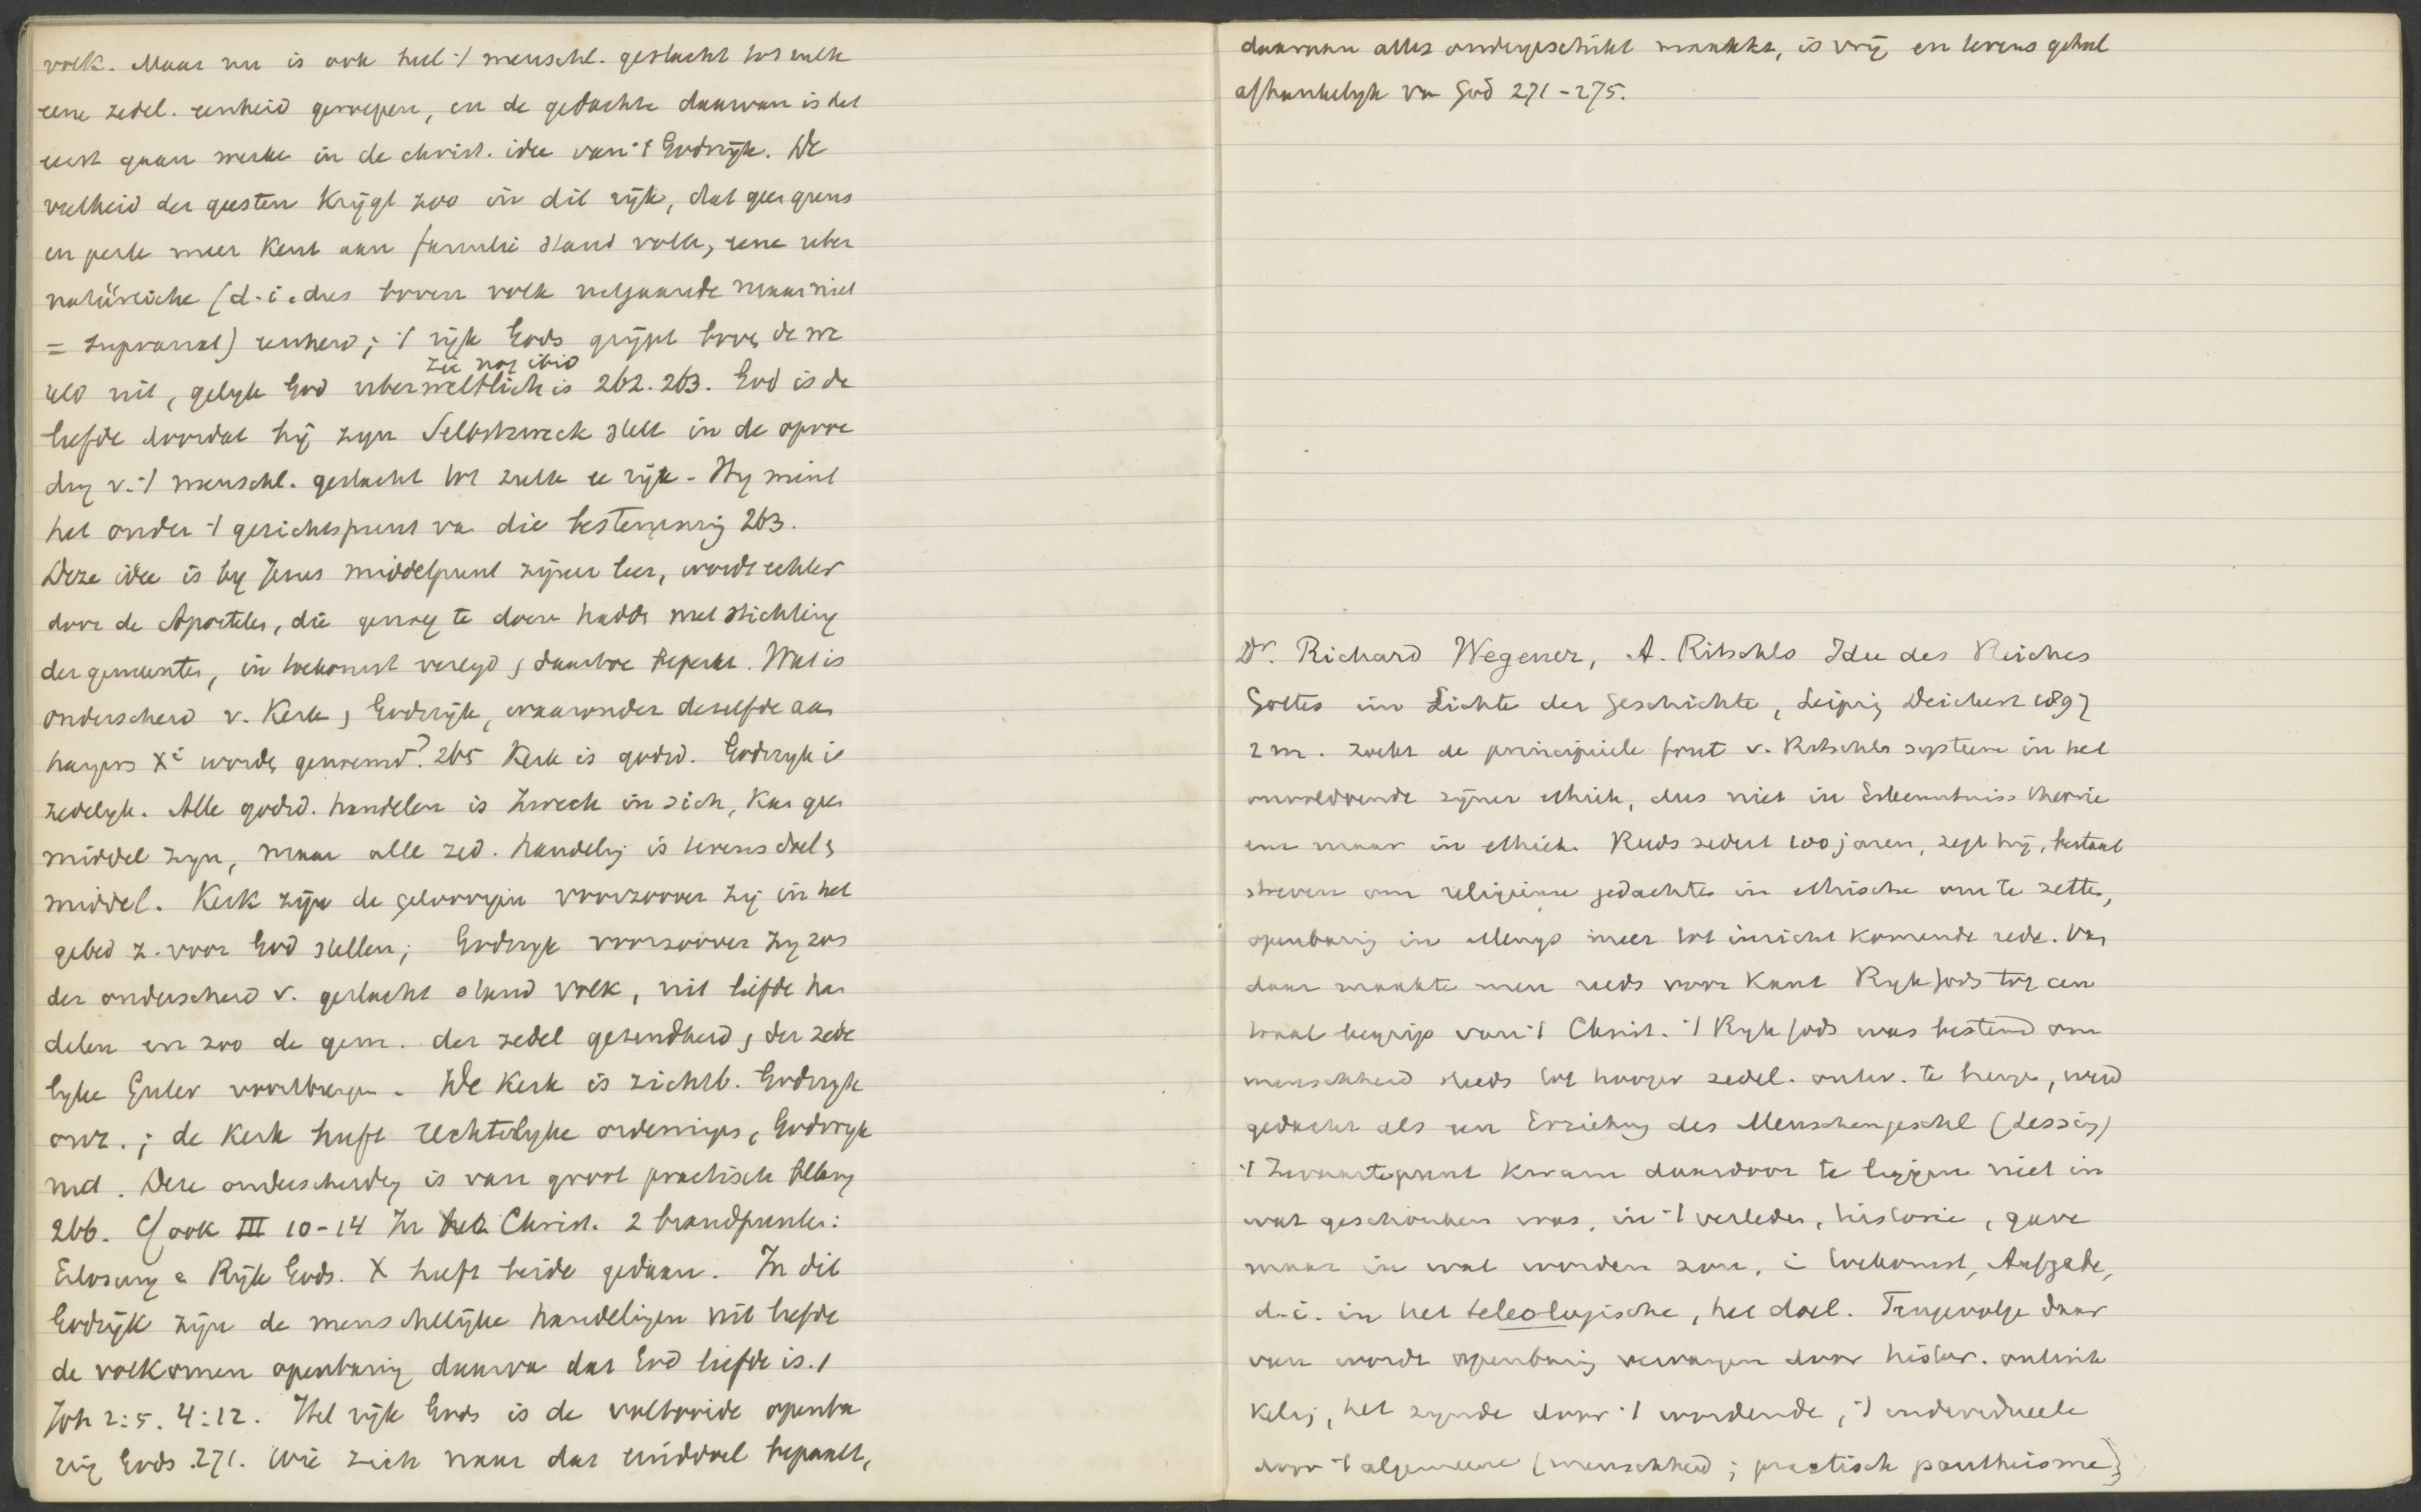 volk. Maar nu is ook heel 't menschl. geslacht tot zulk
eene zedel. eenheid geroepen, en de gedachte daarvan is het
eerst gaan werken in de christ. idee van 't Godsrijk. De
veelheid der geesten krijgt zoo in dit rijk, dat geen grens
en perk meer kent aan familie stand volk, eene über
natürliche (d.i. dus boven volk uitgaande maar niet
= supranat) eenheid; 't rijk Gods grijpt boven de we
zie nog ibid
reld uit, gelijk God überweltlich is 262. 263. God is de
liefde doordat hij zijn Selbstzweck stelt in de opvoe
ding v. 't menschl. geslacht tot zulk ee rijk. Hij mint
het onder 't gezichtspunt va die bestemming 263.
Deze idee is by Jezus middelpunt zijner leer, wordt echter
door de Apostelen, die genoeg te doen hadde met stichting
der gemeentes, in toekomst verlegd & daartoe beperkt. Wat is
onderscheid v. Kerk & Godsrijk, waaronder dezelfde aan
hangers Xi worde genoemd? 265 Kerk is godsd. Godsryk is
zedelyk. Alle godsd. handelen is Zweck in sich, kan geen
middel zyn, maar alle zed. handeling is tevens doel &
middel. Kerk zijn de geloovigen voorzoover zij in het
gebed z. voor God stellen; Godsryk voorzoover zy zon
der onderscheid v. geslacht stand volk, uit liefde han
delen en zoo de gem. der zedel gezindheid & der zede
lyke Güter voortbrengen. De Kerk is zichtb. Godsryk
onz.; de Kerk heeft rechtelyke ordenings, Godsryk
niet. Deze onderscheiding is van groot practisch belang
266. Cf ook III 10-14 In het Christ. 2 brandpunten:
Erlosung & Rijk Gods. X heeft beide gedaan. In dit
Godsrijk zijn de menschelijke handelingen uit liefde
de volkomen openbaring daarva dat God liefde is. 1
Joh 2:5. 4:12. Het rijk Gods is de voltooide openba
ring Gods. 271. Wie zich naar dat einddoel bepaalt,
daaraan alles ondergeschikt maakt, is vrij en tevens geheel
afhankelyk va God 271-275.
Dr. Richard Wegener, A. Ritschls Idee des Reiches
Gottes im Lichte der Geschichte, Leipzig Deichert 1897
2 m. zoekt de principieele fout v. Ritschls systeem in het
onvoldoende zijner ethiek, dus niet in Erkenntniss theorie
enz maar in ethiek. Reeds sedert 100 jaren, zegt hij, bestaat
streven om religieuse gedachten in ethische om te zetten,
openbaring in allengs meer tot inzicht komende rede. Van
daar maakte men reeds voor Kant Ryk Gods tot cen
traal begrip van 't Christ. 't Ryk Gods was bestemd om
menschheid steeds tot hooger zedel. ontw. te brengen, werd
gedacht als een Erziehung des Menschengeschl (Lessing)
't Zwaartepunt kwam daardoor te liggen niet in
wat geschonken was, in 't verleden, historie, gave
maar in wat worden zou, i toekomst, Aufgabe,
d.i. in het teleologische, het doel. Tengevolge daar
van wordt openbaring vervangen door histor. ontwik
keling, het zynde door 't wordende, 't individueele
door 't algemeene (menschheid; practisch pantheisme)